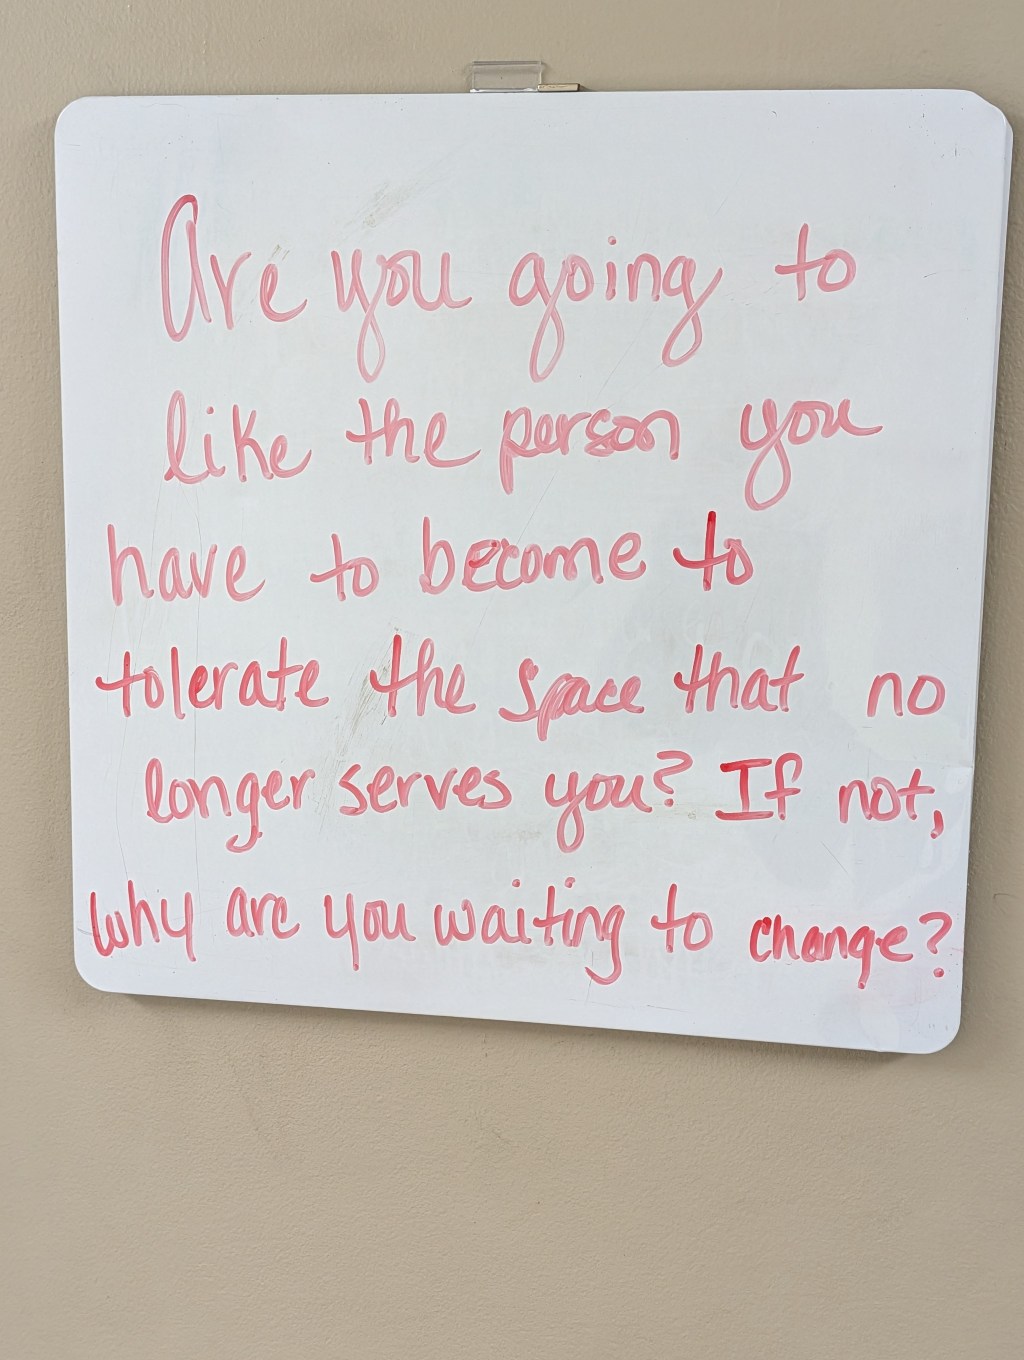 Are you going to
like the person you
have to become to
tolerate the space that no
longer serves you? If not,
why are you waiting to change?